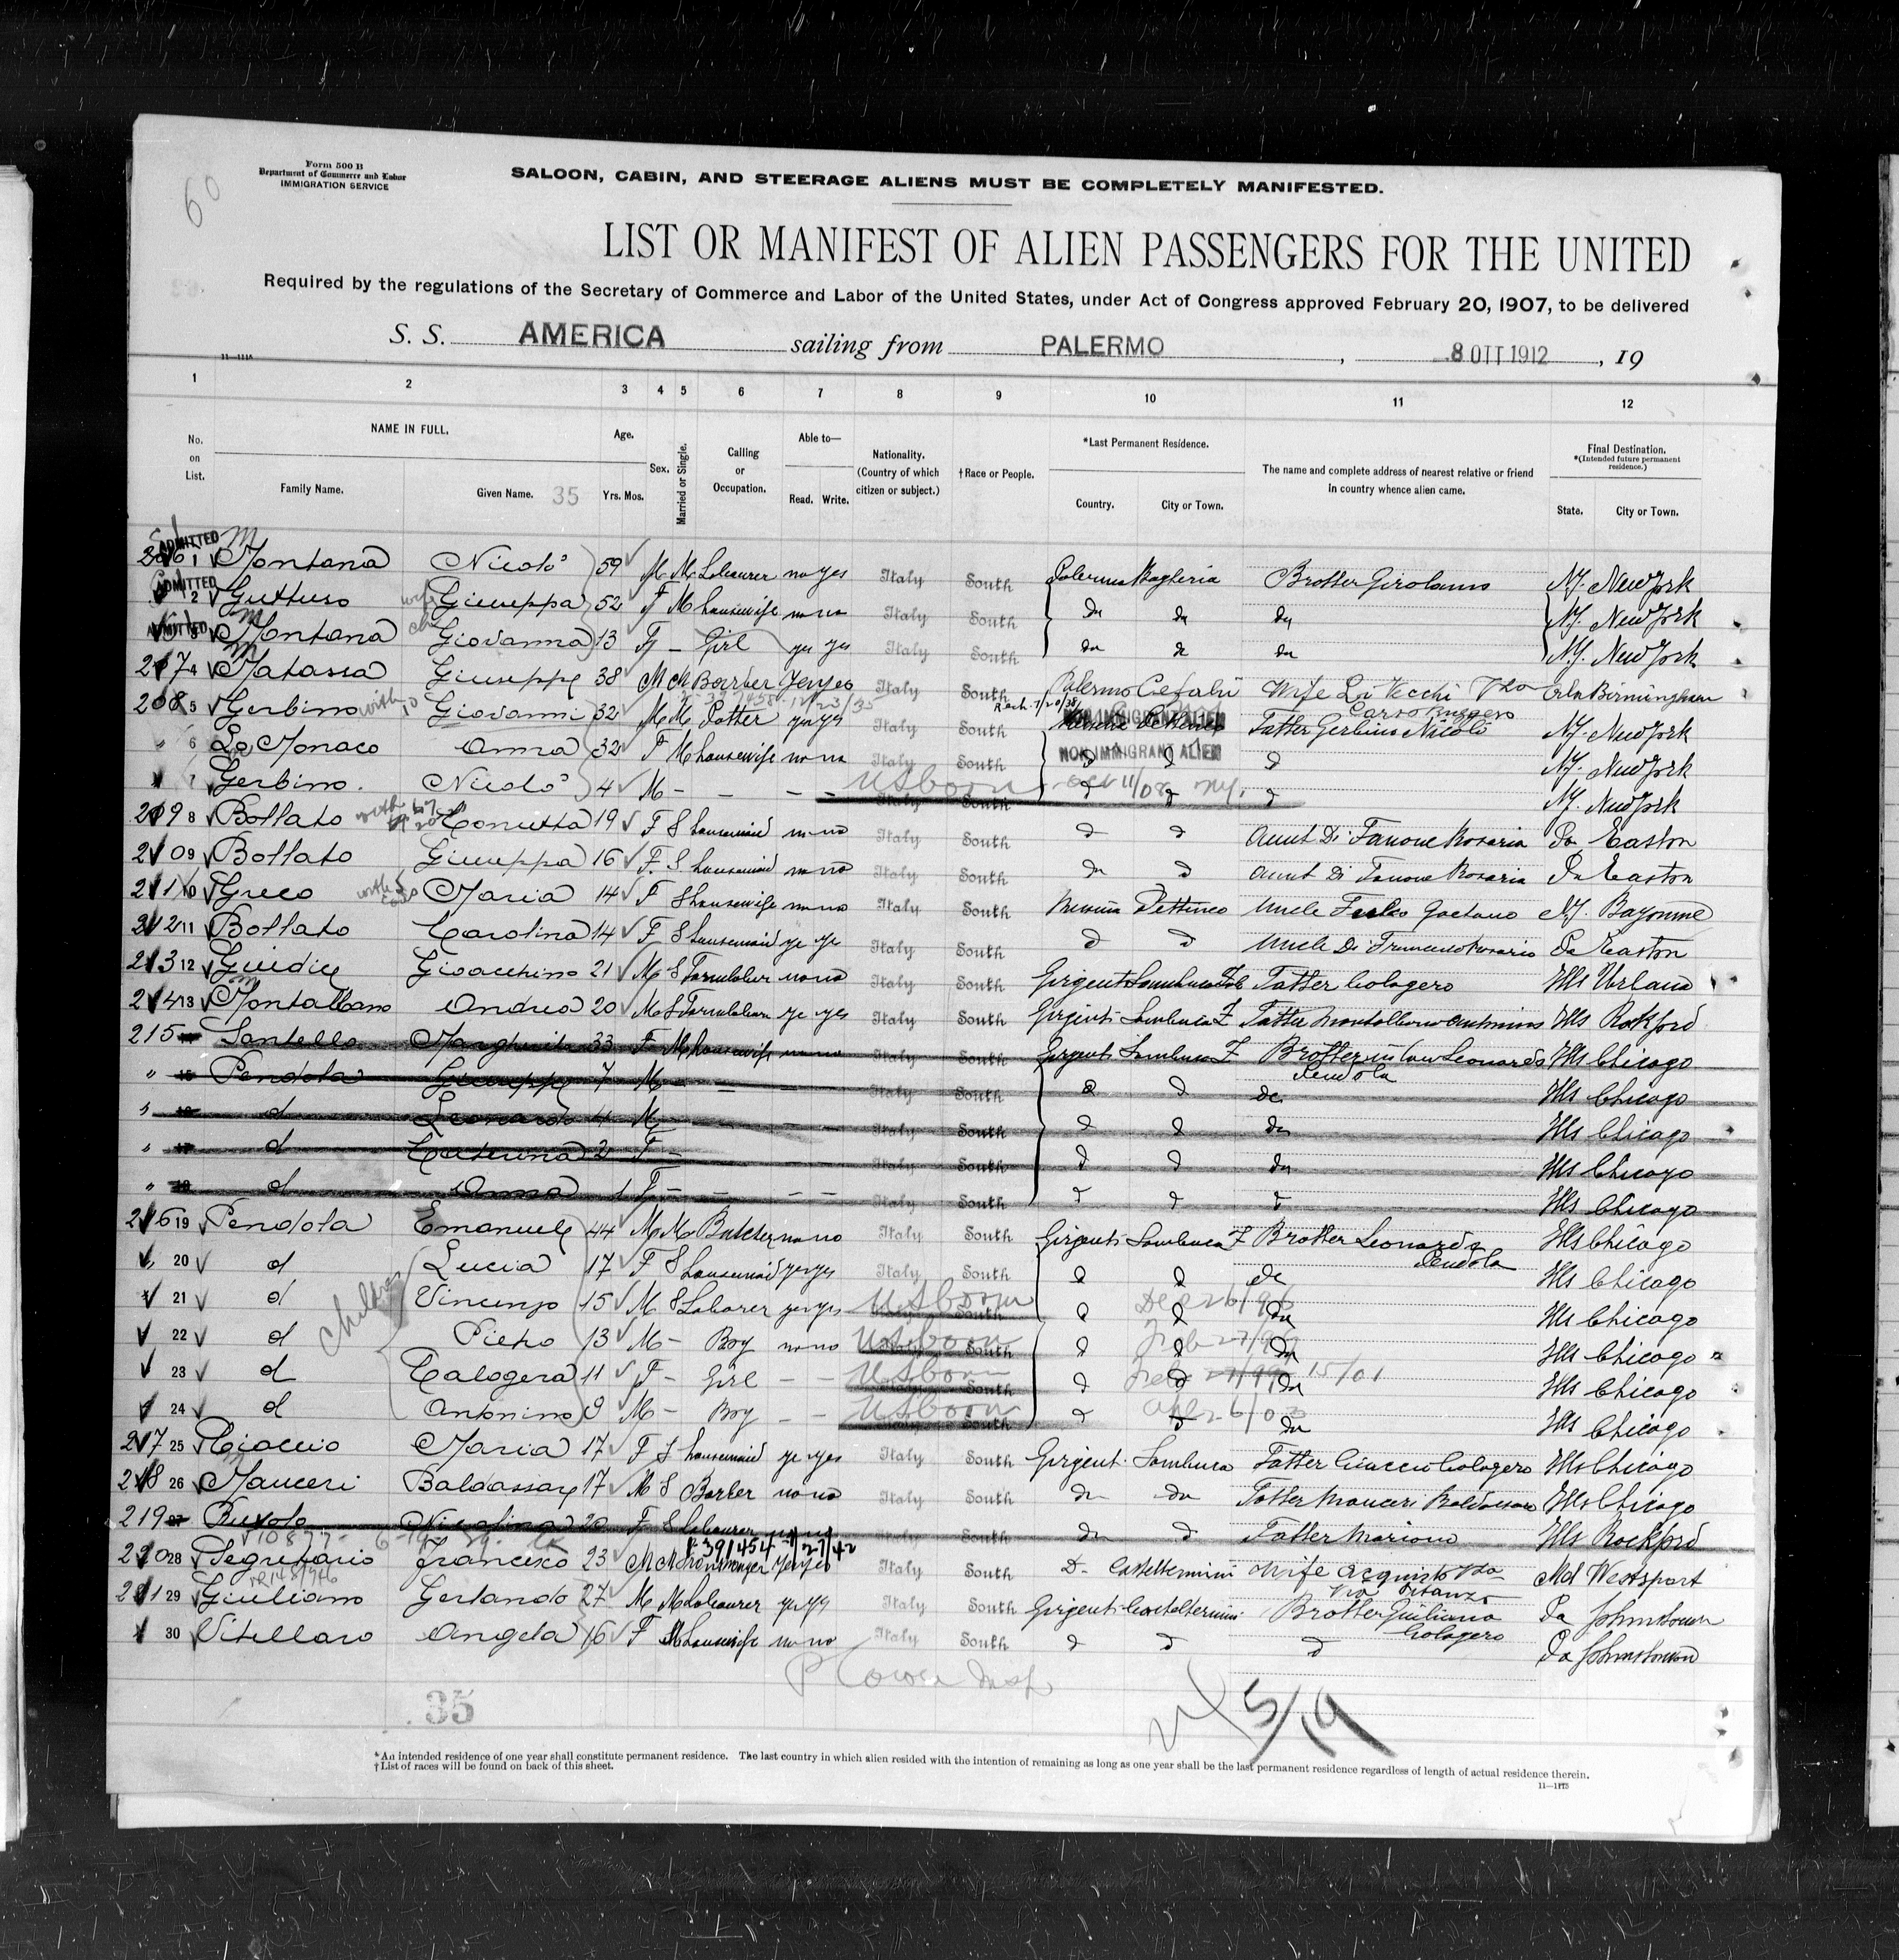 60
Form 500 B
Department of Commerce and Labor
IMMIGRATION SERVICE
SALOON, CABIN, AND STEERAGE ALIENS MUST BE COMPLETELY MANIFESTED.
LIST OR MANIFEST OF ALIEN PASSENGERS FOR THE UNITED
Required by the regulations of the Secretary of Commerce and Labor of the United States, under Act of Congress approved February 20, 1907, to be delivered
S. S. AMERICA sailing from PALERMO , 8 OTT 1912 , 19
11—111A
1 2 3 4 5 6 7 8 9 10 11 12
No. on List. NAME IN FULL. Family Name. Given Name. 35 Age. Yrs. Mos. Sex. Married or Single. Calling or Occupation. Able to— Read. Write. Nationality. (Country of which citizen or subject.) †Race or People. *Last Permanent Residence. Country. City or Town. The name and complete address of nearest relative or friend in country whence alien came. Final Destination. *(Intended future permanent residence.) State. City or Town.
ADMITTED
206 1 Montana Nicolò 59 M M Labourer no yes Italy South Palermo Bagheria Brother Girolamo NY. New York
ADMITTED
2 Guttuso wife Giuseppa 52 F M housewife no no Italy South do do do NY. New York
ADMITTED 3 Montana Giovanna 13 F — Girl yes yes Italy South do do do NY. New York
207 4 Matassa Giuseppe 38 M M Barber yes yes Italy South Palermo Cefalù Wife Lo Vecchi Ala Birmingham
208 5 Gerbino with Giovanni 32 M M Potter yes yes Italy South NON IMMIGRANT ALIEN Father Gerbino Nicolò NY. New York
" 6 Lo Monaco Anna 32 F M housewife no no Italy South NON IMMIGRANT ALIEN d NY. New York
7 Gerbino Nicolò 4 M — — — US born Italy South Oct 11/08 NY. d d d NY. New York
209 8 Bollato with Conutta 19 F S housemaid no no Italy South d d Aunt Di Fanove Rosaria Pa Easton
210 9 Bollato Giuseppa 16 F. S housemaid no no Italy South do d Aunt Di Fanove Rosaria Pa Easton
211 10 Greco Maria 14 F S housewife no no Italy South Messina Pettineo Uncle Gaetano NJ. Bayonne
212 11 Bollato Carolina 14 F S housemaid ye ye Italy South d d Uncle Di Pa Easton
213 12 Giudice Gioacchino 21 M S Farmlabour no no Italy South Girgenti Sambuca Zab Father Calogero Ills Urbana
214 13 Montalbano Andrea 20 M S Farmlabour ye yes Italy South Girgenti Sambuca Z Father Montalbano Antonino Ills Rokford
215 14 Santella Margherita 33 F M housewife no no Italy South Girgenti Sambuca Z Brother in law Leonardo Pendola Ills Chicago
" 15 Pendola Giuseppe 7 M — — Italy South d d do Ills Chicago
" 16 d Leonardo 4 M — Italy South d d do Ills Chicago
" 17 d Caterina 2 F — Italy South d d do Ills Chicago
" 18 d Anna 1 F — — — — Italy South d d d Ills Chicago
216 19 Pendola Emanuele 44 M M Butcher no no Italy South Girgenti Sambuca Z Brother Leonardo Pendola Ills Chicago
20 d Lucia 17 F S housemaid yes yes Italy South d d do Ills Chicago
21 d children Vincenzo 15 M S Laborer yes yes US born South d Dec 26/96 d do Ills Chicago
22 d Pietro 13 M — Boy no no US born South d d do Ills Chicago
23 d Calogera 11 F — Girl — — US born South d d do 15/01 Ills Chicago
24 d Antonino 9 M — Boy — — US born South d d do Ills Chicago
217 25 Ciaccio Maria 17 F S housemaid ye yes Italy South Girgent. Sambuca Father Ciaccio Calogero Ills Chicago
218 26 Mauceri Baldassare 17 M S Barber no no Italy South do do Father Mauceri Baldassare Ills Chicago
219 27 Nicolina 20 F S Labourer Italy South do d Father Mariano Ills Rockford
220 28 Segretario Francesco 23 M M yes yes Italy South D. Casteltermini Wife Acquisto Md Westport
221 29 Giuliano Gerlando 27 M M Labourer yes yes Italy South Girgenti Casteltermini Brother Giuliano Calogero Pa Johnstown
30 Vitellaro Angela 16 F M housewife no no Italy South d d d Pa Johnstown
35
5/19
*An intended residence of one year shall constitute permanent residence. The last country in which alien resided with the intention of remaining as long as one year shall be the last permanent residence regardless of length of actual residence therein.
†List of races will be found on back of this sheet.
11—1175